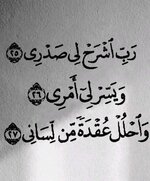 رَبِّ ٱشۡرَحۡ لِي صَدۡرِي ٢٥
وَيَسِّرۡ لِيٓ أَمۡرِي ٢٦
وَٱحۡلُلۡ عُقۡدَةٗ مِّن لِّسَانِي ٢٧